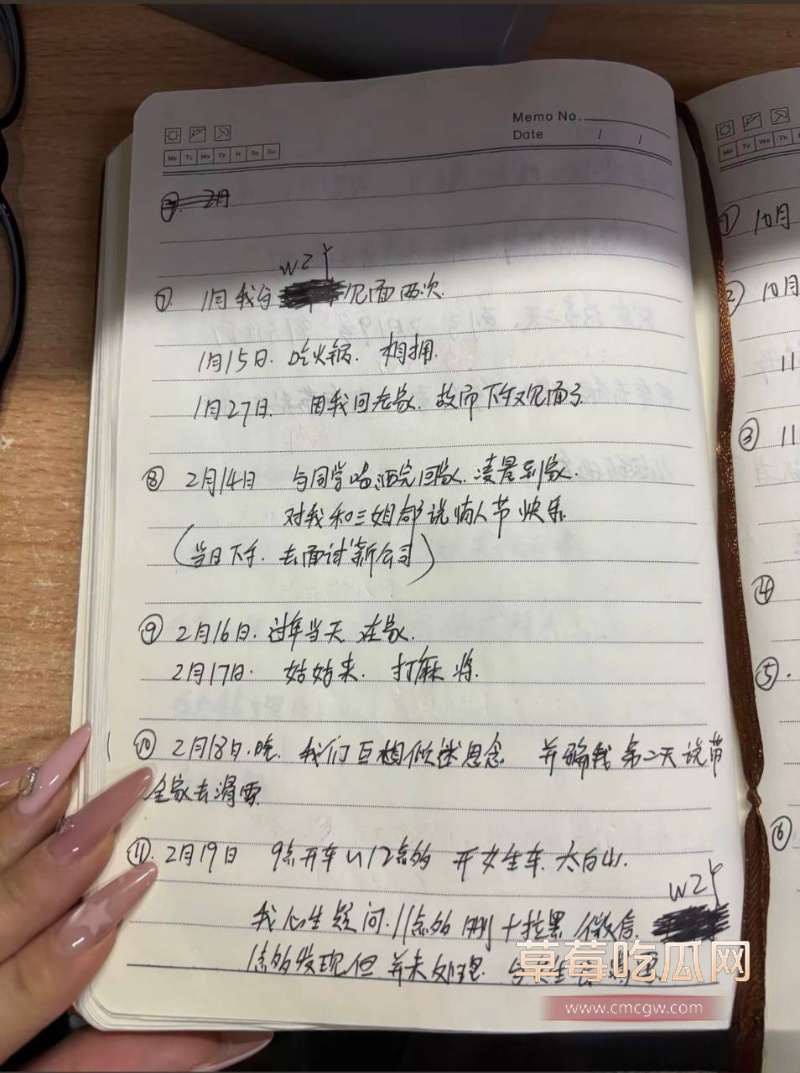 Memo No.
Date / /
Mo Tu We Th Fr Sa Su
2月
WZY
⑦ 1月我与 见面两次.
1月15日. 吃火锅. 相拥.
1月27日. 因我回老家. 故而下午又见面了
⑧ 2月14日 与同学喝酒完回家. 凌晨到家.
对我和三姐都说情人节快乐
(当日下午. 去面试新公司)
⑨ 2月16日. 过年当天 在家.
2月17日. 姑姑来. 打麻将.
⑩ 2月18日. 吃. 我们互相 思念. 并骗我 第二天说带
全家去滑雪
⑪. 2月19日 9点开车 12点多 开女生车. 太白山.
WZY
我心生疑问. 11点多 删+拉黑 微信.
1点多发现但并未处理. 与
草莓吃瓜网
www.cmcgw.com
① 10月
② 10月
11
③ 11
④
⑤
⑥